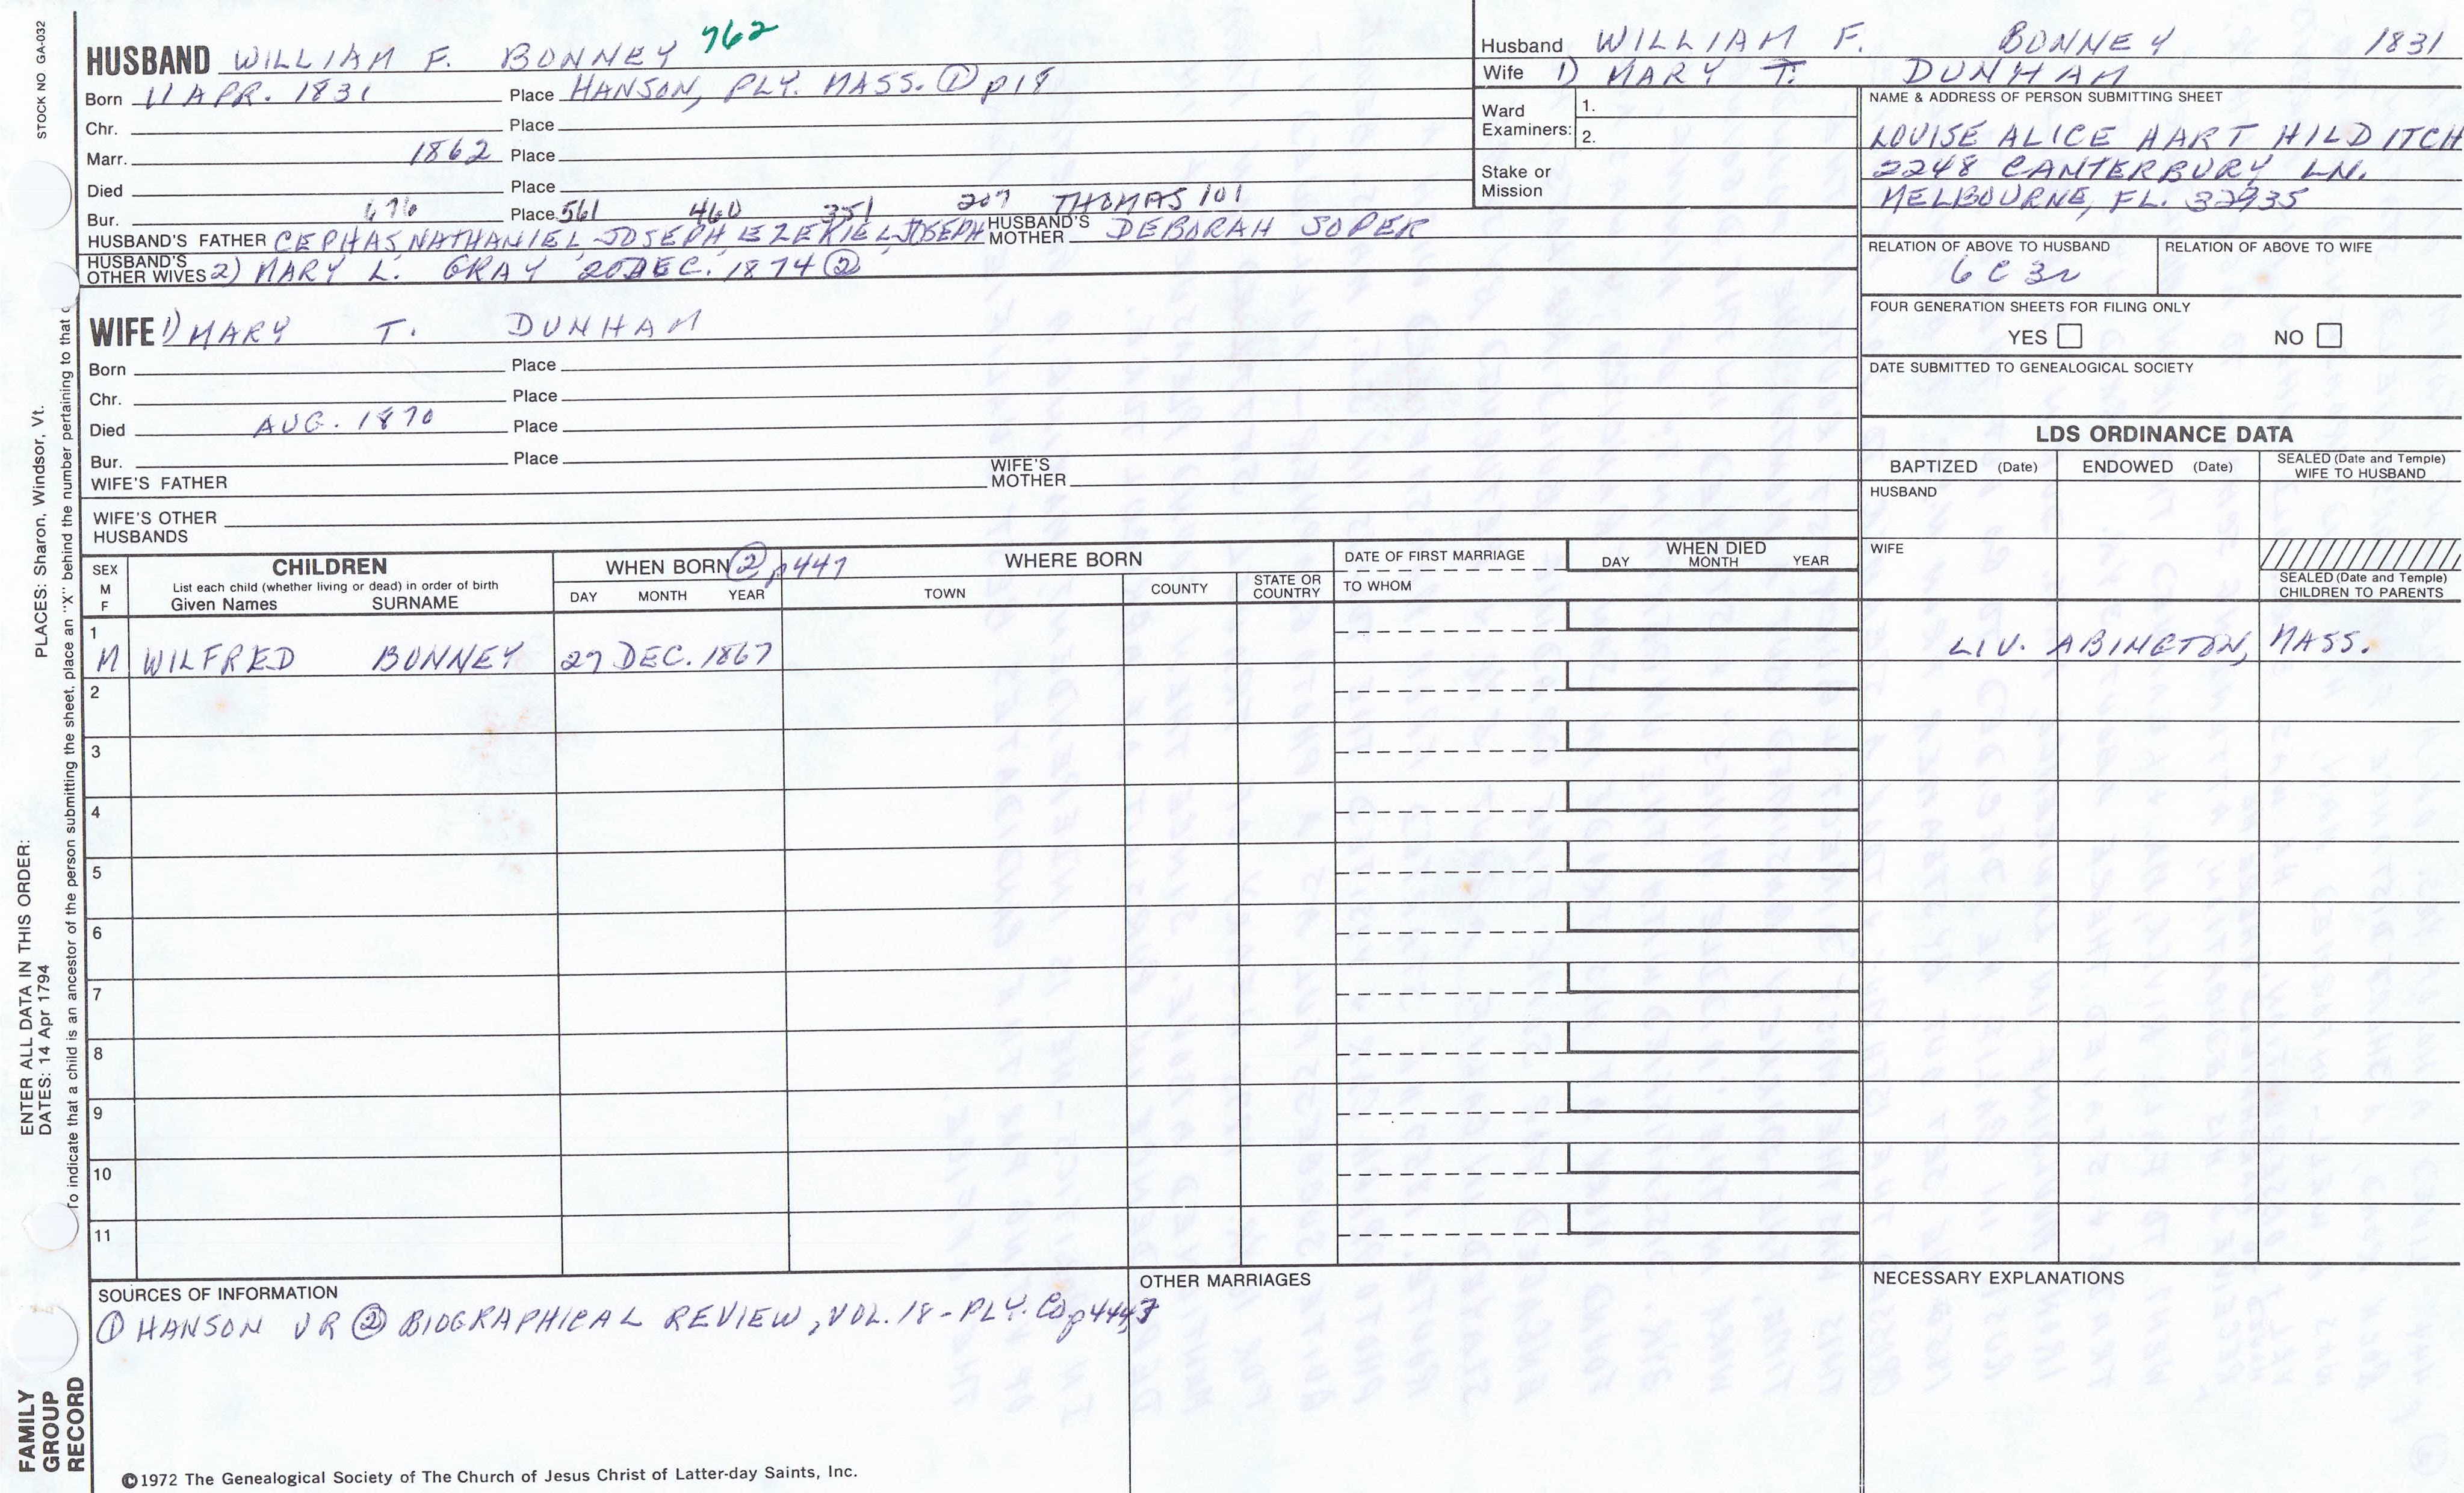 STOCK NO. GA-032
HUSBAND WILLIAM F. BONNEY 762
Born 11 APR. 1831 Place HANSON, PLY. MASS. ① p18
Chr. Place
Marr. 1862 Place
Died Place
Bur. 676 Place 561 460 351 207 THOMAS 101
HUSBAND'S FATHER CEPHAS, NATHANIEL, JOSEPH, EZEKIEL, JOSEPH HUSBAND'S MOTHER DEBORAH SOPER
HUSBAND'S OTHER WIVES 2) MARY L. GRAY 20 DEC. 1874 ②
WIFE 1) MARY T. DUNHAM
Born Place
Chr. Place
Died AUG. 1870 Place
Bur. Place
WIFE'S FATHER WIFE'S MOTHER
WIFE'S OTHER HUSBANDS
Husband WILLIAM F. BONNEY 1831
Wife 1) MARY T. DUNHAM
Ward Examiners: 1.
2.
Stake or Mission
NAME & ADDRESS OF PERSON SUBMITTING SHEET
LOUISE ALICE HART HILDITCH
2248 CANTERBURY LN.
MELBOURNE, FL. 32935
RELATION OF ABOVE TO HUSBAND RELATION OF ABOVE TO WIFE
6C3R
FOUR GENERATION SHEETS FOR FILING ONLY
YES NO
DATE SUBMITTED TO GENEALOGICAL SOCIETY
LDS ORDINANCE DATA
BAPTIZED (Date) ENDOWED (Date) SEALED (Date and Temple) WIFE TO HUSBAND
HUSBAND
WIFE
SEALED (Date and Temple) CHILDREN TO PARENTS
SEX M F CHILDREN WHEN BORN ② p447 WHERE BORN DATE OF FIRST MARRIAGE WHEN DIED
List each child (whether living or dead) in order of birth
Given Names SURNAME DAY MONTH YEAR TOWN COUNTY STATE OR COUNTRY TO WHOM DAY MONTH YEAR
1
M WILFRED BONNEY 27 DEC. 1867 LIV. ABINGTON, MASS.
2
3
4
5
6
7
8
9
10
11
SOURCES OF INFORMATION
① HANSON VR ② BIOGRAPHICAL REVIEW, VOL. 18 - PLY. Co
OTHER MARRIAGES
NECESSARY EXPLANATIONS
©1972 The Genealogical Society of The Church of Jesus Christ of Latter-day Saints, Inc.
ENTER ALL DATA IN THIS ORDER:
DATES: 14 Apr 1794 PLACES: Sharon, Windsor, Vt.
To indicate that a child is an ancestor of the person submitting the sheet, place an "X" behind the number pertaining to that
FAMILY
GROUP
RECORD